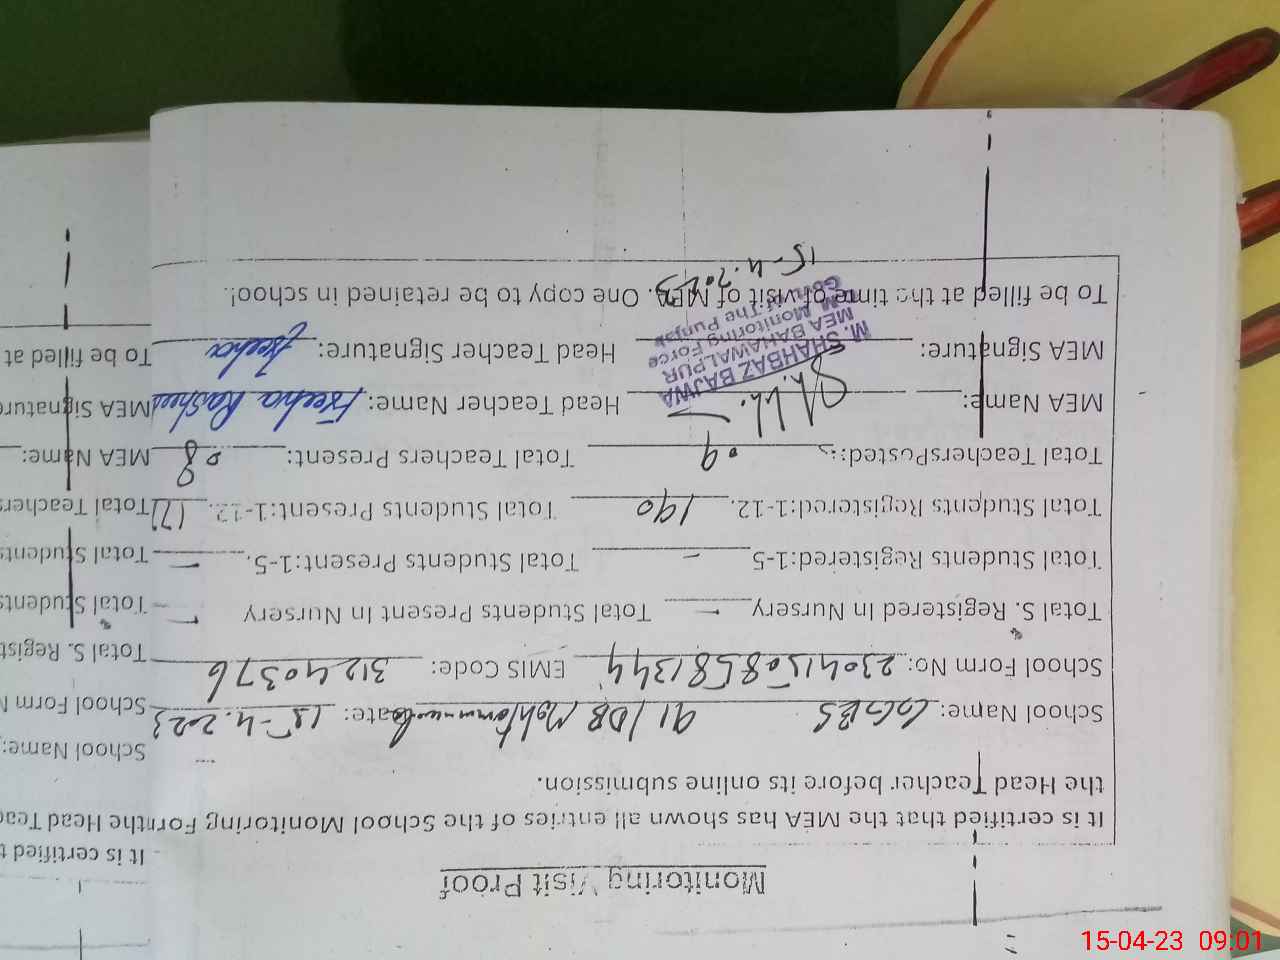 Monitoring Visit Proof
It is certified that the MEA has shown all entries of the School Monitoring Form the Head Teac
the Head Teacher before its online submission.
School Name: GGES 91/DB Date: 15-4-2023
School Form No: 230415085581344 EMIS Code: 31240376
Total S. Registered In Nursery — Total Students Present In Nursery —
Total Students Registered:1-5 — Total Students Present:1-5. —
Total Students Registered:1-12. 190 Total Students Present:1-12. 171
Total TeachersPosted: 09 Total Teachers Present: 08
MEA Name: Head Teacher Name: Feeha Rasheed
MEA Signature: Head Teacher Signature: Feeha
M. SHAHBAZ BAJWA
MEA BAHAWALPUR
Monitoring Force
Govt. of The Punjab
To be filled at the time of visit of MEA. One copy to be retained in school!
15-4-2023
It is certified t
School Name:
School Form N
Total S. Regist
Total Students
Total Students
Total Teachers
MEA Name:
MEA Signature
To be filled at
15-04-23 09:01